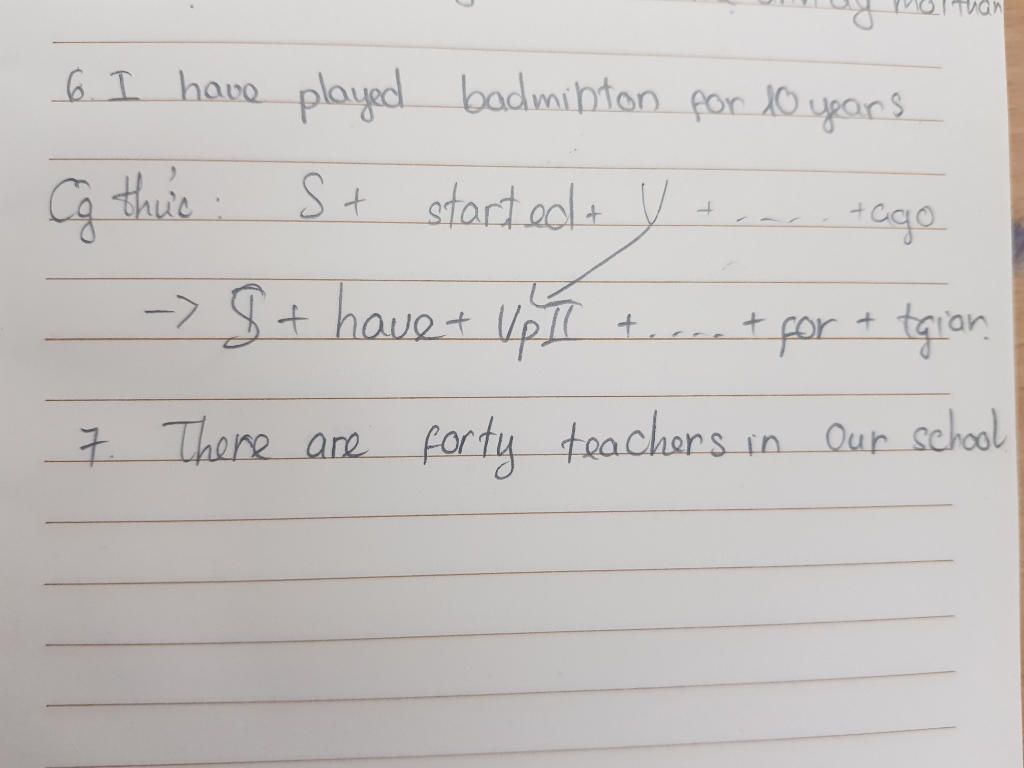 6. I have played badminton for 10 years
Cg thức: S + started + V + ..... + ago
-> S + have + VpII + ..... + for + tgian.
7. There are forty teachers in our school